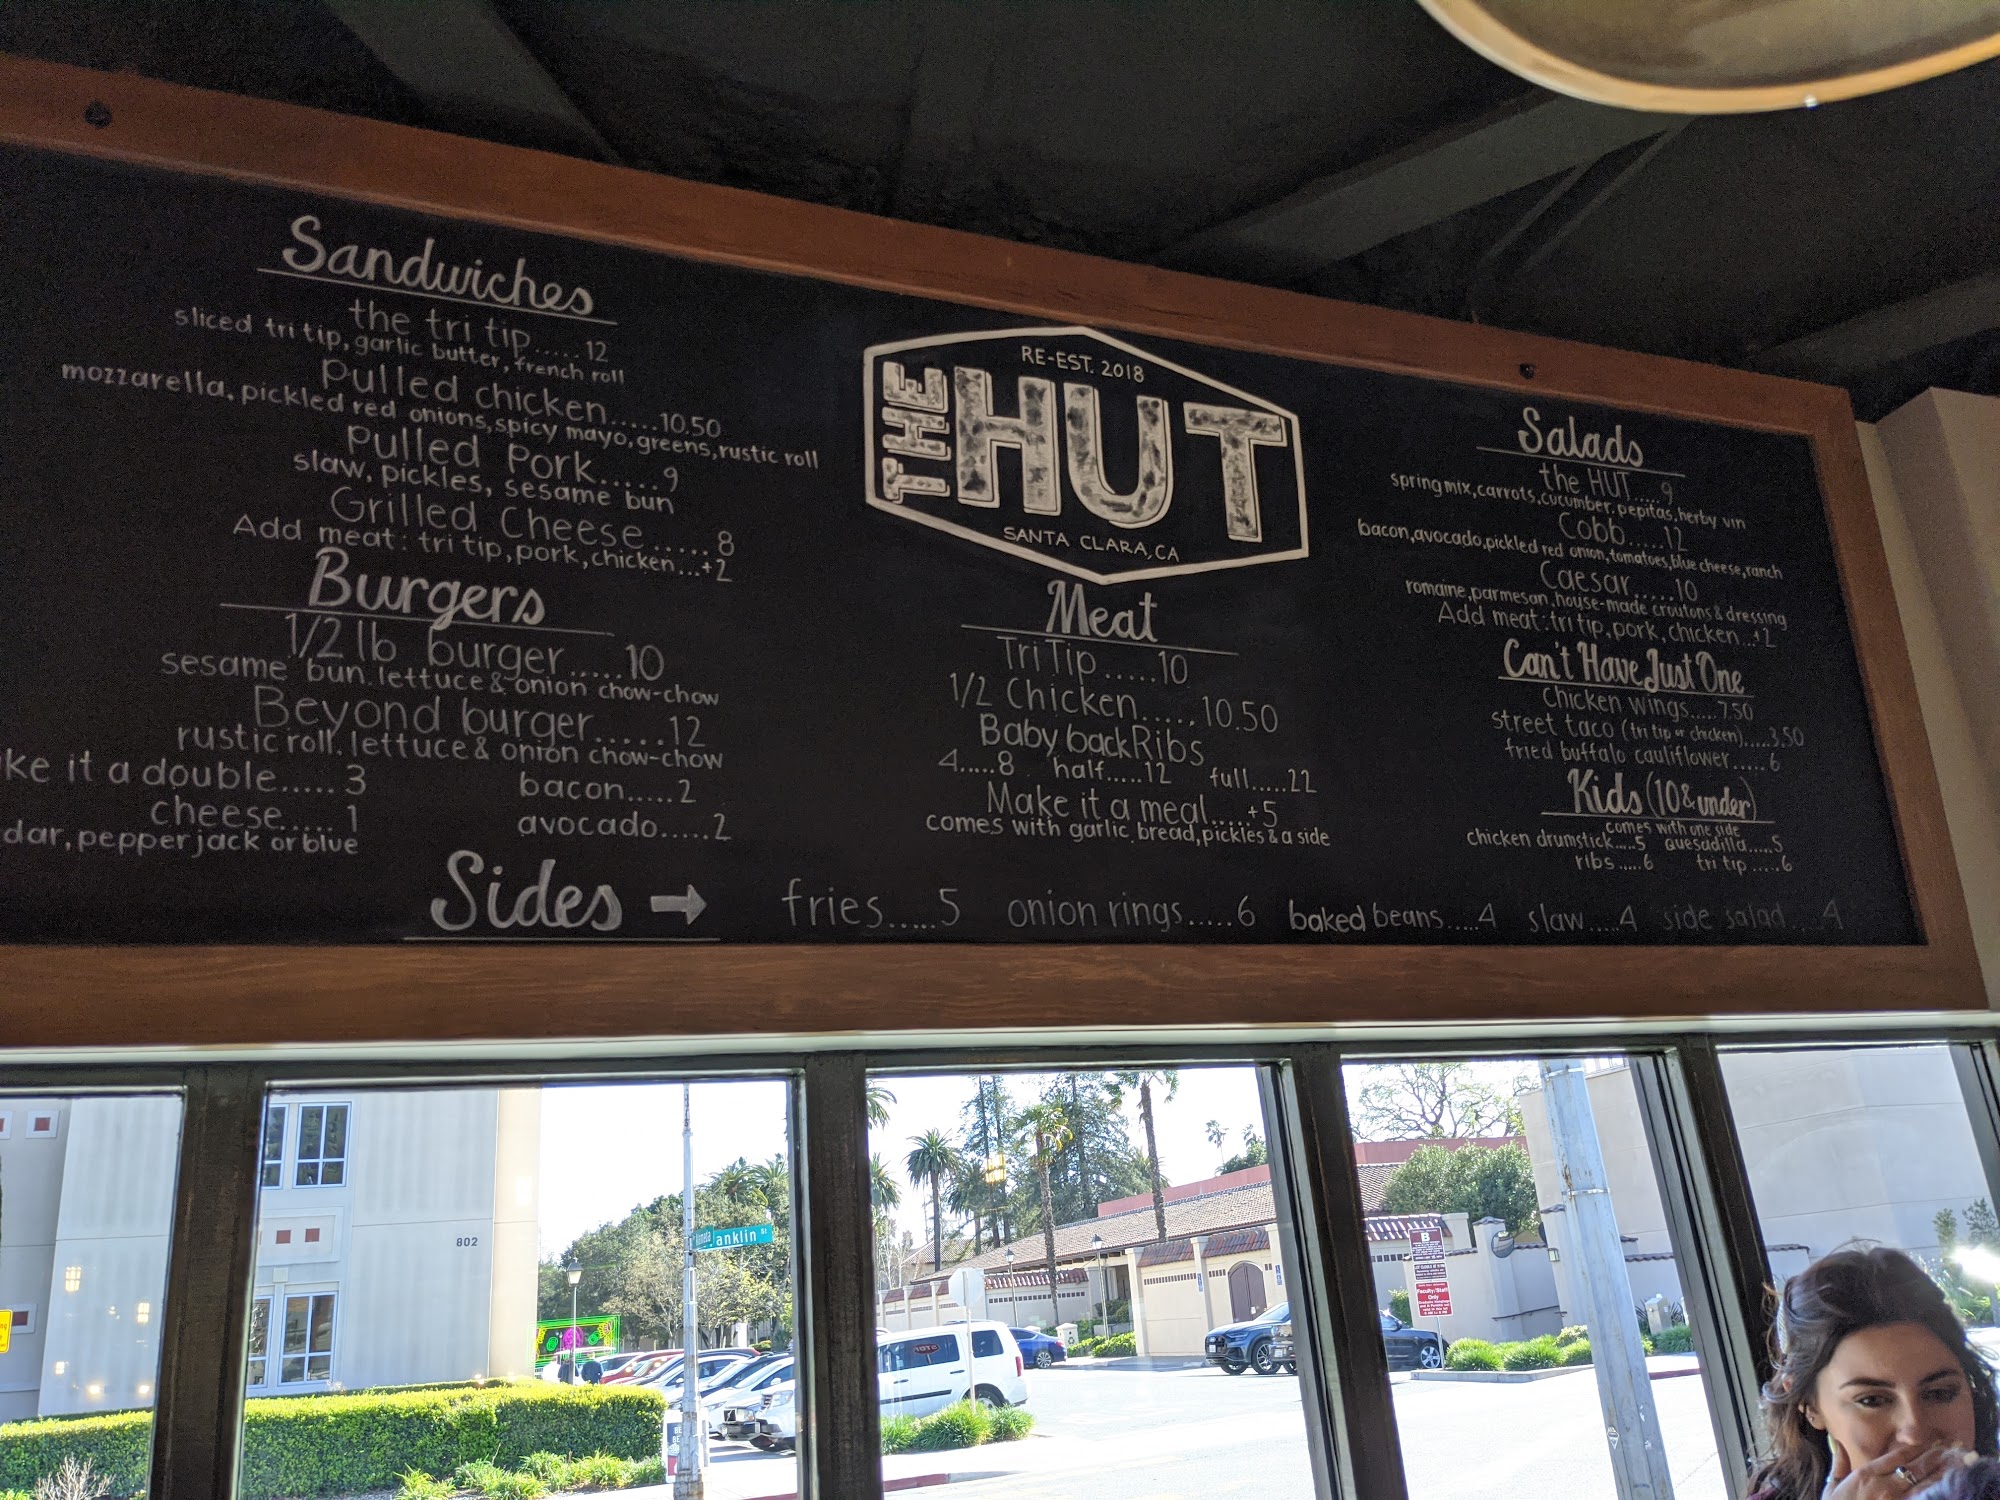 Sandwiches
the tri tip.....12
sliced tri tip, garlic butter, french roll
Pulled chicken.....10.50
mozzarella, pickled red onions, spicy mayo, greens, rustic roll
Pulled Pork.....9
slaw, pickles, sesame bun
Grilled Cheese.....8
Add meat: tri tip, pork, chicken...+2
Burgers
1/2 lb burger.....10
sesame bun, lettuce & onion chow-chow
Beyond burger.....12
rustic roll, lettuce & onion chow-chow
ke it a double.....3
bacon.....2
cheese.....1
avocado.....2
dar, pepper jack or blue
RE-EST. 2018
THE HUT
SANTA CLARA, CA
Meat
Tri Tip.....10
1/2 Chicken.....10.50
Baby back Ribs
4.....8 half.....12 full.....22
Make it a meal.....+5
comes with garlic bread, pickles & a side
Salads
the HUT.....9
spring mix, carrots, cucumber, pepitas, herby vin
Cobb.....12
bacon, avocado, pickled red onion, tomatoes, blue cheese, ranch
Caesar.....10
romaine, parmesan, house-made croutons & dressing
Add meat: tri tip, pork, chicken...+2
Can't Have Just One
Chicken wings.....7.50
street taco (tri tip or chicken).....3.50
fried buffalo cauliflower.....6
Kids (10 & under)
comes with one side
chicken drumstick.....5 quesadilla.....5
ribs.....6 tri tip.....6
Sides → fries.....5 onion rings.....6 baked beans....4 slaw....4 side salad....4
802
anklin St
B
Faculty/Staff
Only
STOP